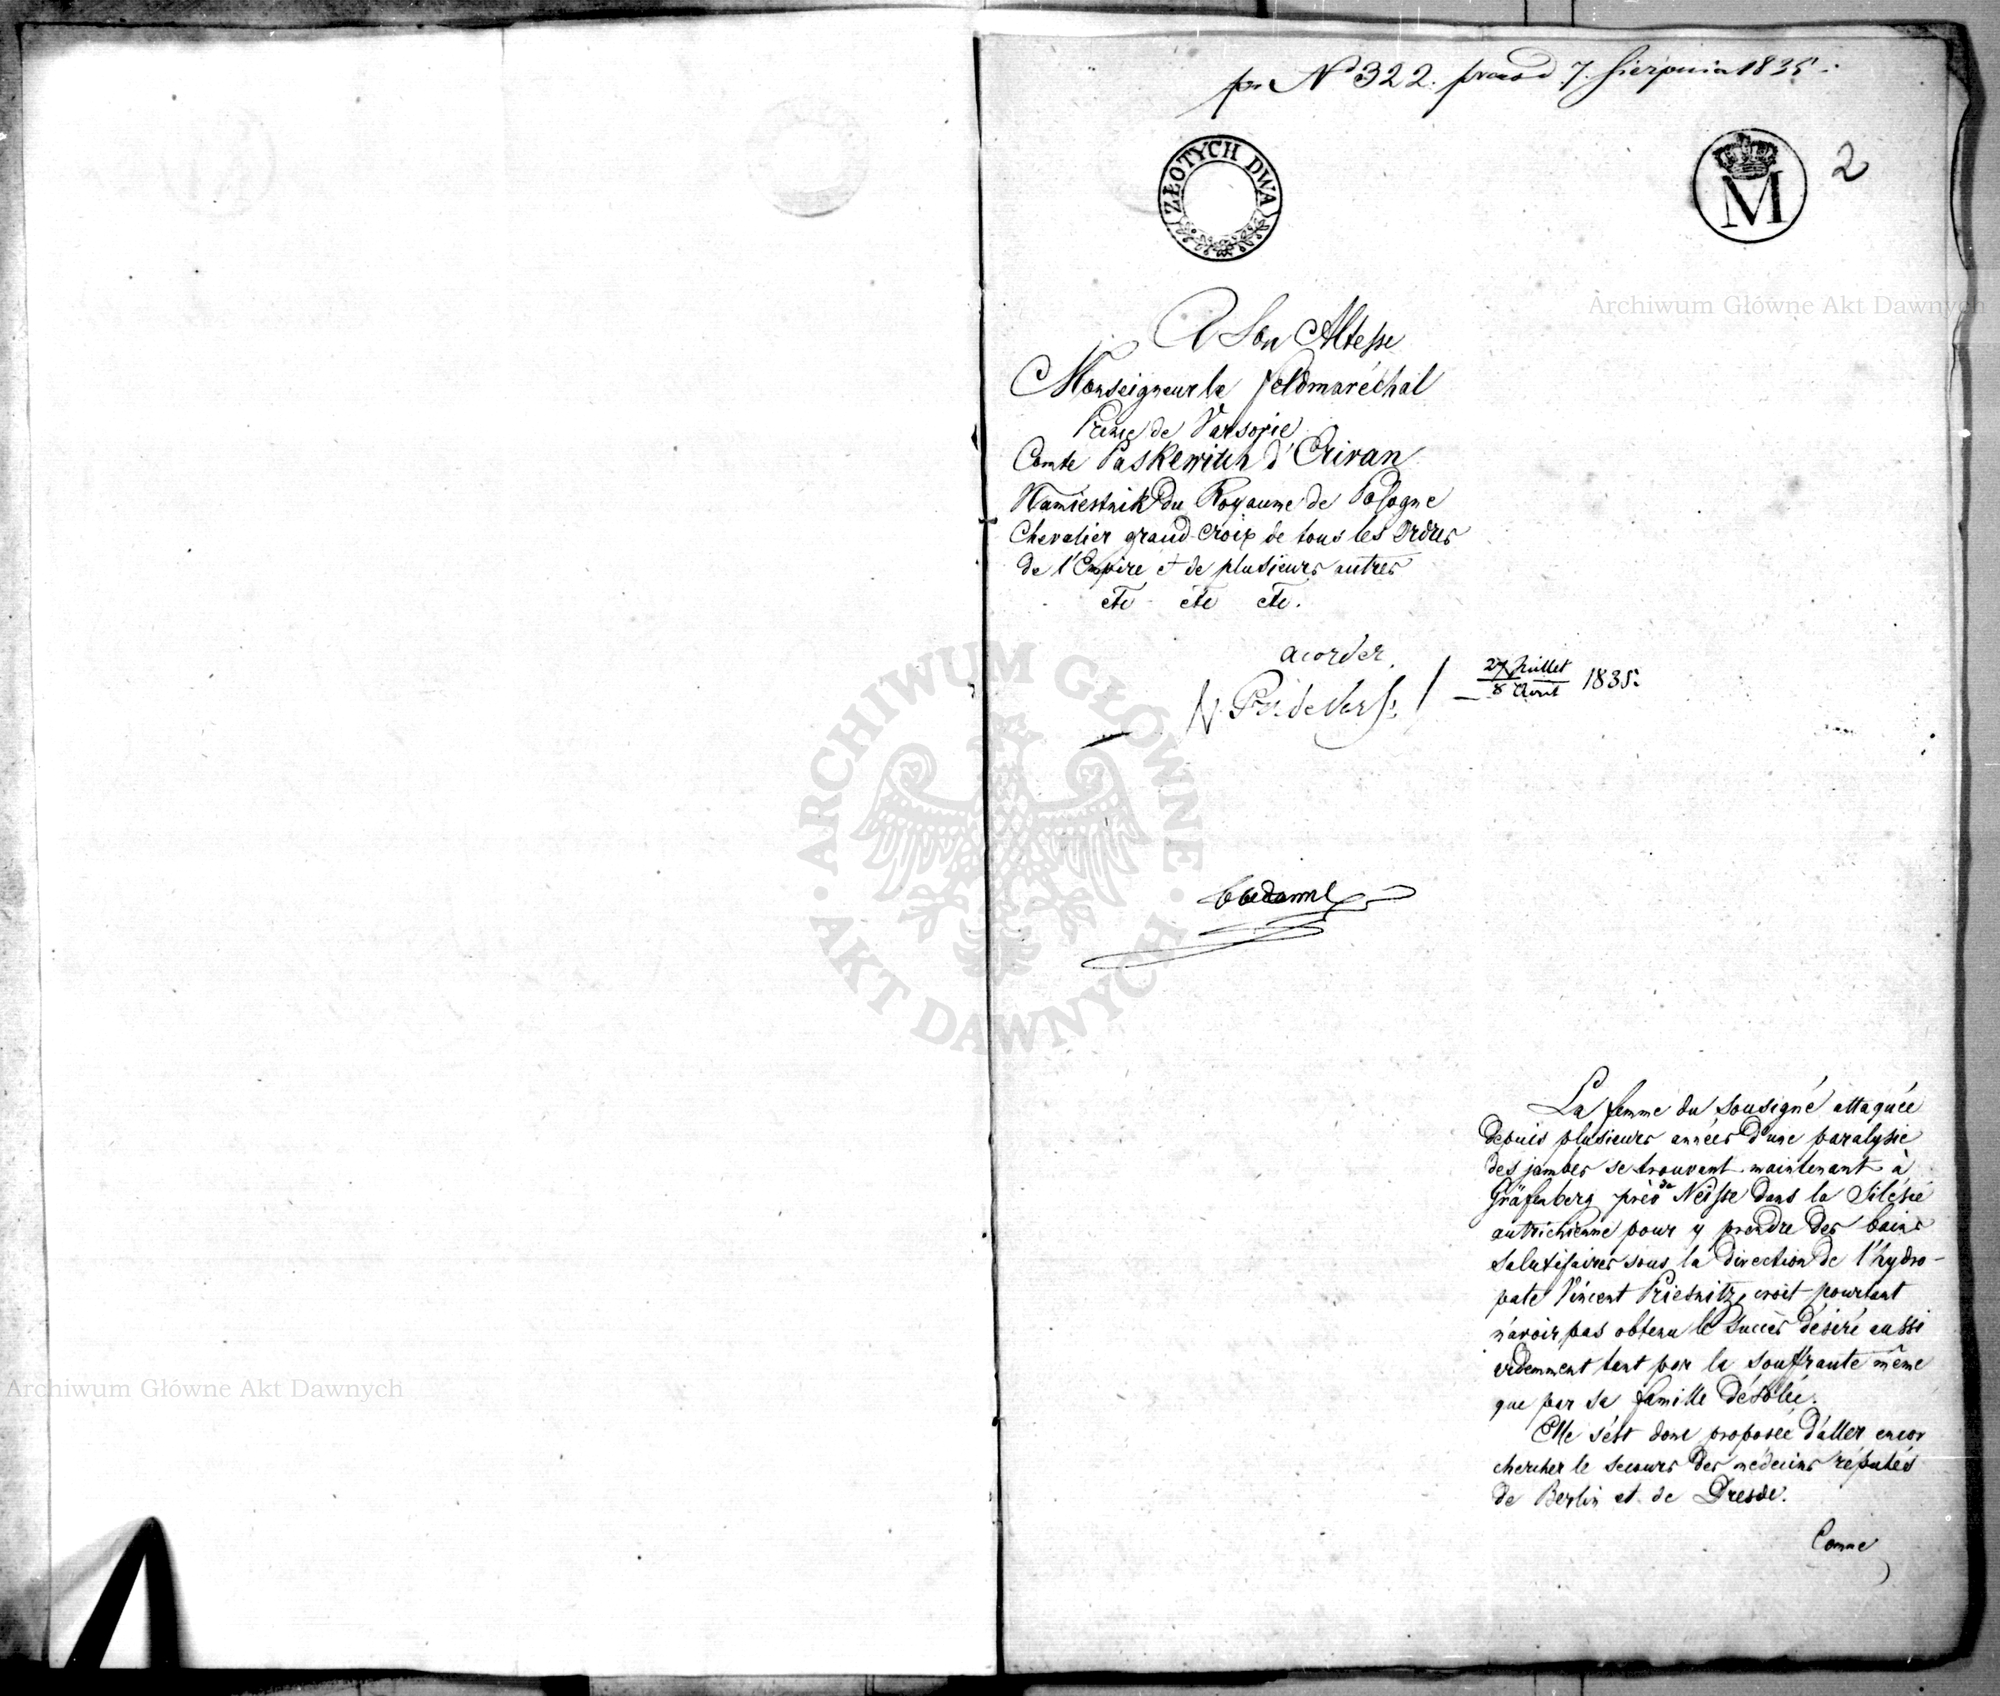 pr N° 322. praes d 7. Sierpnia 1835.
ZŁOTYCH DWA
M
2
A Son Altesse
Monseigneur le Feldmaréchal
Prince de Varsovie
Comte Paskewitch d'Erivan
Namiestnik du Royaume de Pologne
Chevalier grand-Croix de tous les Ordres
de l'Empire et de plusieurs autres
etc etc etc.
acorder.
27 Juillet
8 Aout 1835.
La femme du Sousigné attaquée
depuis plusieurs années d'une paralysie
des jambes se trouvant maintenant à
Gräfenberg près de Neisse dans la Silésie
autrichienne pour y prendre des bains
salutifaires sous la direction de l'hydro-
pate Vincent Priesnitz, croit pourtant
n'avoir pas obtenu le succès désiré aussi
ardemment tant par la souffrante même
que par sa famille désolée.
Elle s'est donc proposée d'aller encor
chercher le secours des médecins réputés
de Berlin et de Dresde.
Comme
Archiwum Główne Akt Dawnych
ARCHIWUM GŁÓWNE AKT DAWNYCH
Archiwum Główne Akt Dawnych